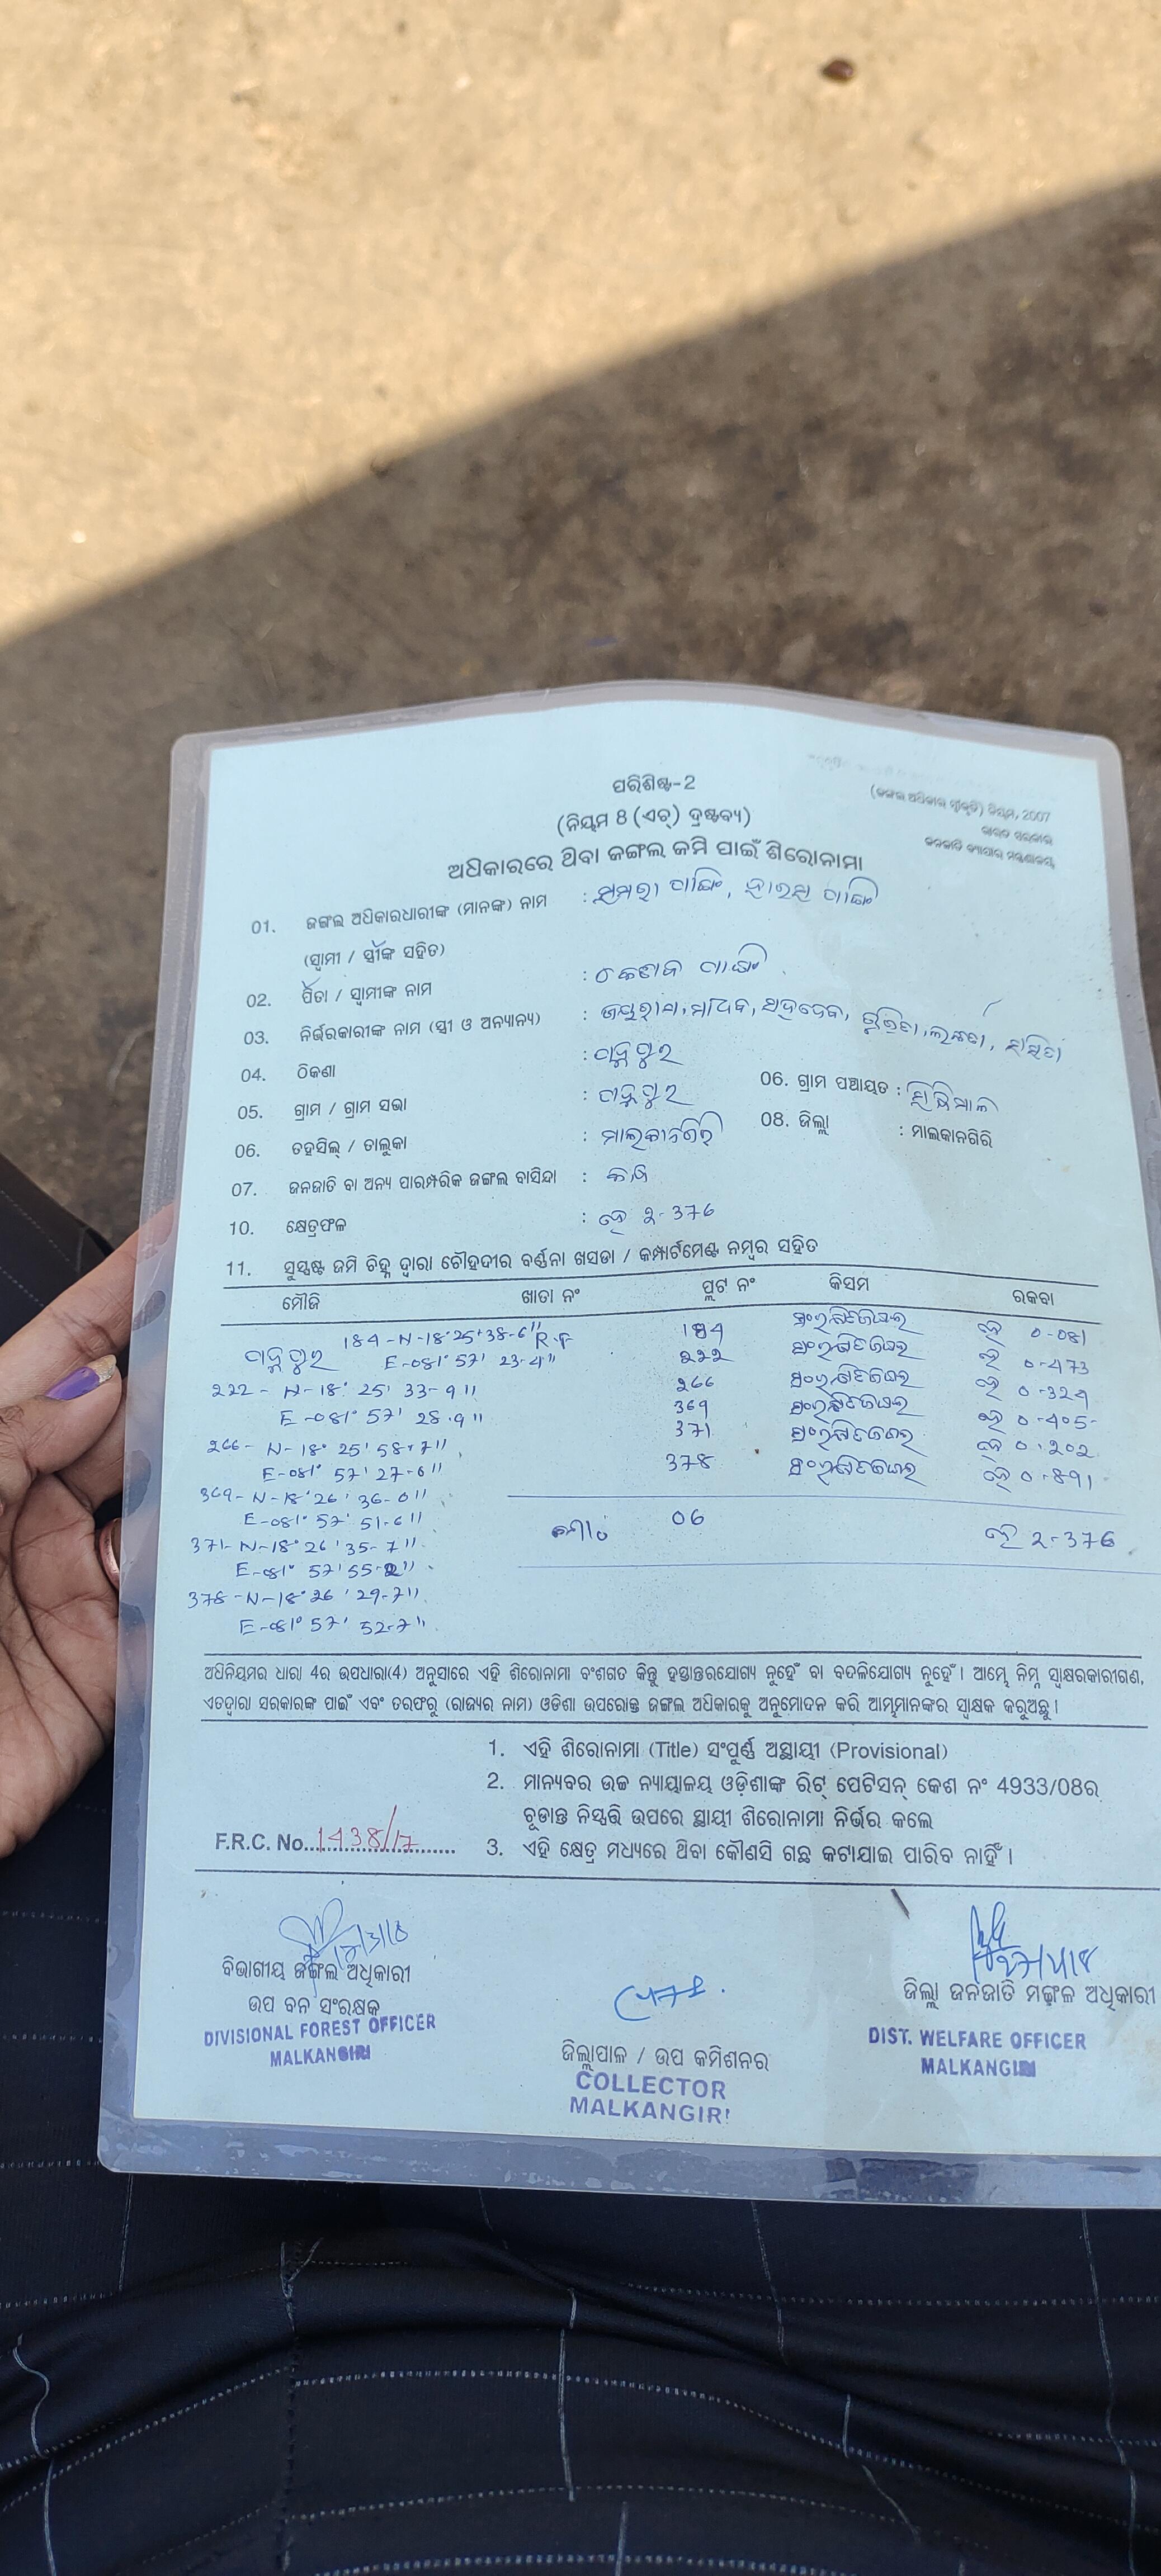 ପରିଶିଷ୍ଟ-2
(ନିୟମ 8 (ଏଚ୍) ଦ୍ରଷ୍ଟବ୍ୟ)
(ଜଙ୍ଗଲ ଅଧିକାର ସ୍ୱୀକୃତି) ନିୟମ, 2007
ଭାରତ ସରକାର
ଜନଜାତି ବ୍ୟାପାର ମନ୍ତ୍ରଣାଳୟ
ଅଧିକାରରେ ଥିବା ଜଙ୍ଗଲ ଜମି ପାଇଁ ଶିରୋନାମା
01. ଜଙ୍ଗଲ ଅଧିକାରଧାରୀଙ୍କ (ମାନଙ୍କ) ନାମ :
(ସ୍ୱାମୀ / ସ୍ତ୍ରୀଙ୍କ ସହିତ)
02. ପିତା / ସ୍ୱାମୀଙ୍କ ନାମ :
03. ନିର୍ଭରକାରୀଙ୍କ ନାମ (ସ୍ତ୍ରୀ ଓ ଅନ୍ୟାନ୍ୟ) : ଜୟରାମ, ମାଧବ, ସହଦେବ,
04. ଠିକଣା :
05. ଗ୍ରାମ / ଗ୍ରାମ ସଭା : 06. ଗ୍ରାମ ପଞ୍ଚାୟତ :
06. ତହସିଲ୍ / ତାଲୁକା : ମାଲକାନଗିରି 08. ଜିଲ୍ଲା : ମାଲକାନଗିରି
07. ଜନଜାତି ବା ଅନ୍ୟ ପାରମ୍ପରିକ ଜଙ୍ଗଲ ବାସିନ୍ଦା :
10. କ୍ଷେତ୍ରଫଳ : ହେ 2-376
11. ସୁସ୍ପଷ୍ଟ ଜମି ଚିହ୍ନ ଦ୍ୱାରା ଚୌହଦୀର ବର୍ଣ୍ଣନା ଖସଡା / କମ୍ପାର୍ଟମେଣ୍ଟ ନମ୍ବର ସହିତ
ମୌଜି ଖାତା ନଂ ପ୍ଲଟ ନଂ କିସମ ରକବା
184-N-18°25'38-6" R.F 184 ହେ 0-081
E-081° 57' 23-4" 222 ହେ 0-473
222- N-18° 25' 33-9" 266 ହେ 0-324
E-081° 57' 28-9" 369 ହେ 0-405
266- N-18° 25' 58-7" 371 ହେ 0-202
E-081° 57' 27-6" 378 ହେ 0-891
369-N-18°26' 36-0"
E-081° 57' 51-6" ମୋଟ 06 ହେ 2-376
371-N-18°26'35-7"
E-081° 57'55-2"
378-N-18°26'29-7"
E-081° 57' 52-7"
ଅଧିନିୟମର ଧାରା 4ର ଉପଧାରା(4) ଅନୁସାରେ ଏହି ଶିରୋନାମା ବଂଶଗତ କିନ୍ତୁ ହସ୍ତାନ୍ତରଯୋଗ୍ୟ ନୁହେଁ ବା ବଦଳିଯୋଗ୍ୟ ନୁହେଁ । ଆମ୍ଭେ ନିମ୍ନ ସ୍ୱାକ୍ଷରକାରୀଗଣ,
ଏତଦ୍ଦ୍ୱାରା ସରକାରଙ୍କ ପାଇଁ ଏବଂ ତରଫରୁ (ରାଜ୍ୟର ନାମ) ଓଡିଶା ଉପରୋକ୍ତ ଜଙ୍ଗଲ ଅଧିକାରକୁ ଅନୁମୋଦନ କରି ଆମ୍ଭମାନଙ୍କର ସ୍ୱାକ୍ଷକ କରୁଅଛୁ ।
1. ଏହି ଶିରୋନାମା (Title) ସଂପୂର୍ଣ୍ଣ ଅସ୍ଥାୟୀ (Provisional)
2. ମାନ୍ୟବର ଉଚ୍ଚ ନ୍ୟାୟାଳୟ ଓଡ଼ିଶାଙ୍କ ରିଟ୍ ପେଟିସନ୍ କେଶ ନଂ 4933/08ର
ଚୂଡାନ୍ତ ନିଷ୍ପତ୍ତି ଉପରେ ସ୍ଥାୟୀ ଶିରୋନାମା ନିର୍ଭର କଲେ
F.R.C. No. 1438/17 3. ଏହି କ୍ଷେତ୍ର ମଧ୍ୟରେ ଥିବା କୌଣସି ଗଛ କଟାଯାଇ ପାରିବ ନାହିଁ ।
ବିଭାଗୀୟ ଜଙ୍ଗଲ ଅଧିକାରୀ
ଉପ ବନ ସଂରକ୍ଷକ
DIVISIONAL FOREST OFFICER
MALKANGIRI
ଜିଲ୍ଲାପାଳ / ଉପ କମିଶନର
COLLECTOR
MALKANGIRI
ଜିଲ୍ଲା ଜନଜାତି ମଙ୍ଗଳ ଅଧିକାରୀ
DIST. WELFARE OFFICER
MALKANGIRI